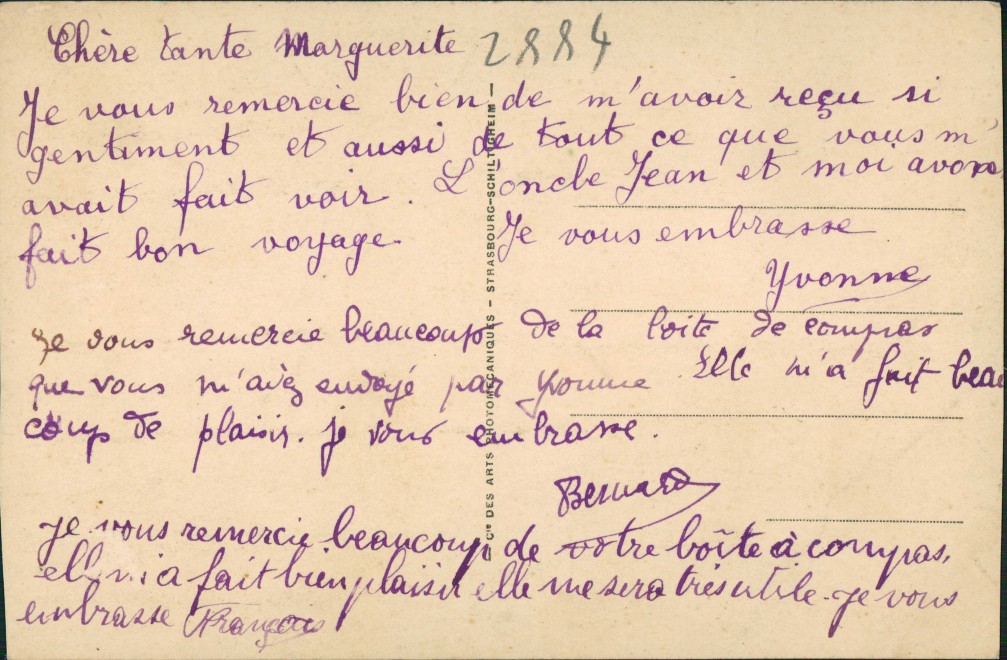 Chère tante Marguerite 2884
Je vous remercie bien de m'avoir reçu si
gentiment et aussi de tout ce que vous m'
avait fait voir. L'oncle Jean et moi avons
fait bon voyage. Je vous embrasse
Yvonne
Je vous remercie beaucoup de la boite de compas
que vous m'avez envoyé par Yvonne. Elle m'a fait beau
coup de plaisir. Je vous embrasse.
Bernard
Je vous remercie beaucoup de votre boîte à compas,
elle m'a fait bien plaisir elle me sera très utile. Je vous
embrasse François
Cie DES ARTS PHOTOMECANIQUES – STRASBOURG-SCHILTIGHEIM –